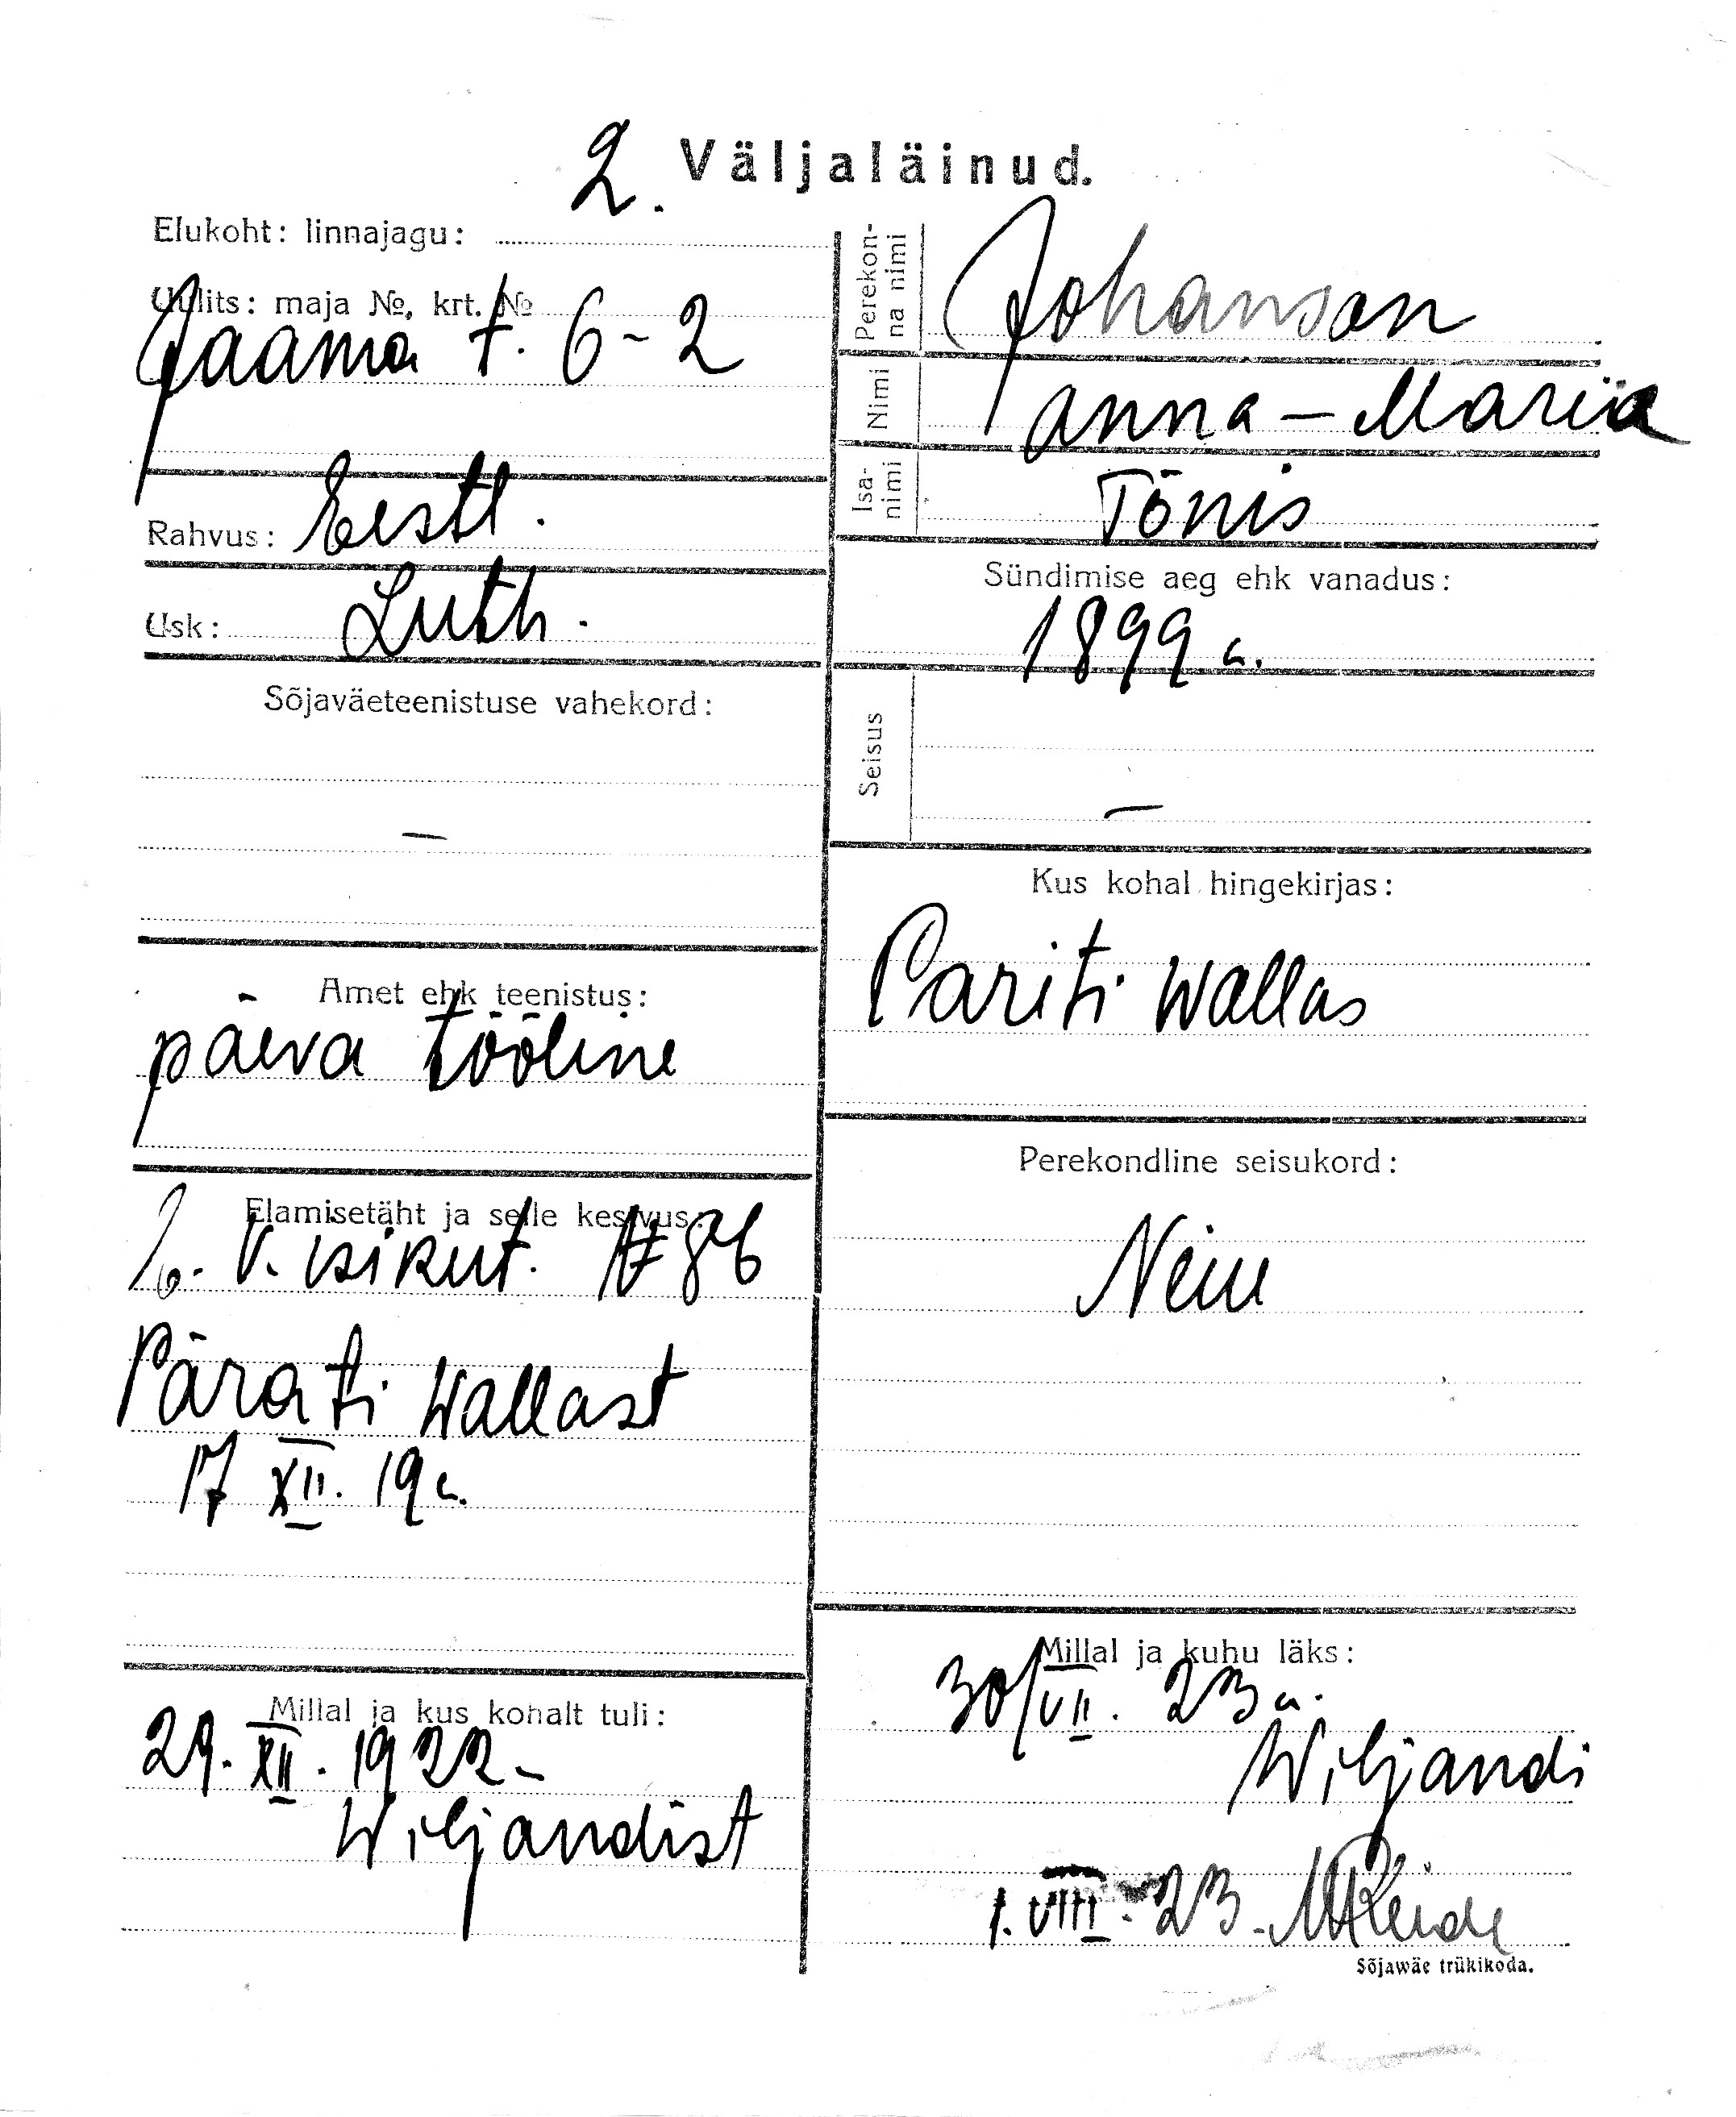 2. Väljaläinud.
Elukoht: linnajagu:
Uulits: maja №, krt. №
Jaama t. 6-2
Rahvus: Eestl.
Usk: Luth.
Sõjaväeteenistuse vahekord:
—
Amet ehk teenistus:
päeva tööline
Elamisetäht ja selle kestvus:
V. isikut. № 86
Pärati Wallast
17 XII. 19 a.
Millal ja kus kohalt tuli:
29. XII. 1922 -
Wiljandist
Perekon-
na nimi
Johanson
Nimi
Anna - Maria
Isa-
nimi
Tõnis
Sündimise aeg ehk vanadus:
1899 a.
Seisus
—
Kus kohal hingekirjas:
Pariti Wallas
Perekondline seisukord:
Neiu
Millal ja kuhu läks:
30/VII. 23 a.
Wiljandi
1. VIII. 23.
Sõjawäe trükikoda.